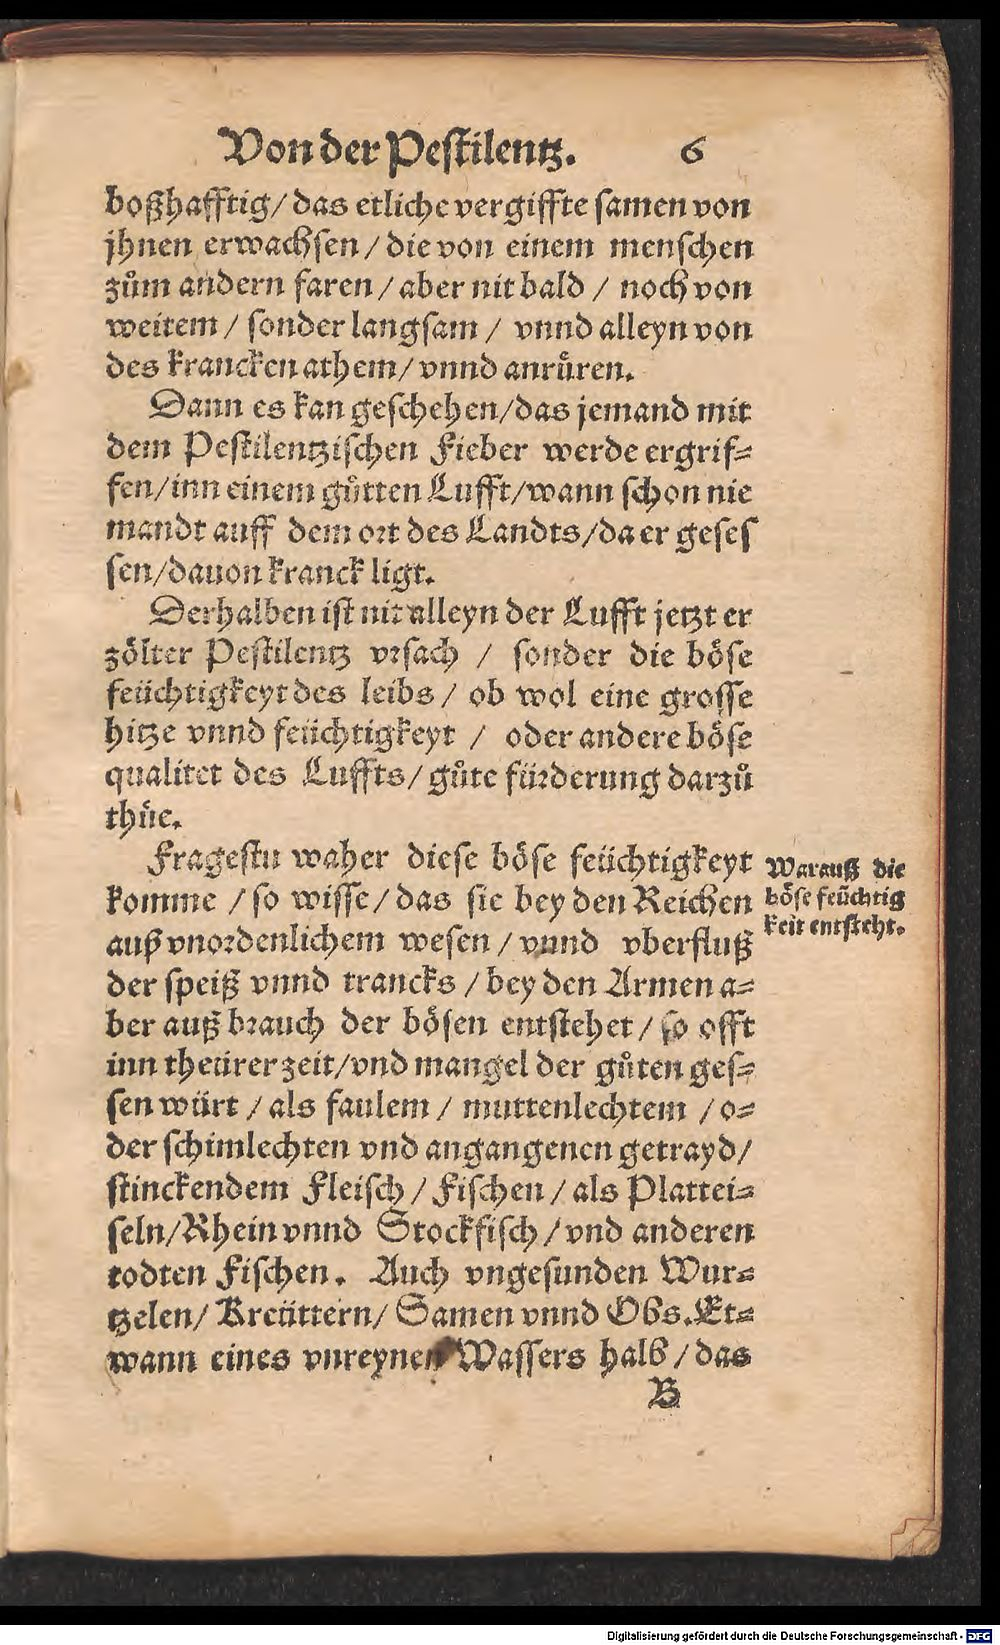 Von der Pestilentz. 6
boßhafftig/ das etliche vergiffte samen von
jhnen erwachsen / die von einem menschen
zům andern faren / aber nit bald / noch von
weitem / sonder langsam / vnnd alleyn von
des krancken athem/ vnnd anrůren.
Dann es kan geschehen/das jemand mit
dem Pestilentzischen Fieber werde ergrif⸗
fen/inn einem gůtten Lufft/wann schon nie
mandt auff dem ort des Landts/da er geses
sen/dauon kranck ligt.
Derhalben ist nit alleyn der Lufft jetzt er
zölter Pestilentz vrsach / sonder die böse
feüchtigkeyt des leibs / ob wol eine grosse
hitze vnnd feüchtigkeyt / oder andere böse
qualitet des Luffts/ gůte fürderung darzů
thüe.
Fragestu waher diese böse feüchtigkeyt
komme / so wisse/ das sie bey den Reichen
auß vnordenlichem wesen / vnnd vberfluß
der speiß vnnd trancks / bey den Armen a⸗
ber auß brauch der bösen entstehet/ so offt
inn theürer zeit/vnd mangel der gůten ges⸗
sen würt / als faulem / muttenlechtem / o⸗
der schimlechten vnd angangenen getrayd/
stinckendem Fleisch / Fischen / als Plattei⸗
seln/Rhein vnnd Stockfisch / vnd anderen
todten Fischen. Auch vngesunden Wur⸗
tzelen/ Kreüttern/ Samen vnnd Obs. Et⸗
wann eines vnreynen Wassers halb / das
B
Warauß die
böse feüchtig
keit entsteht.
Digitalisierung gefördert durch die Deutsche Forschungsgemeinschaft - DFG